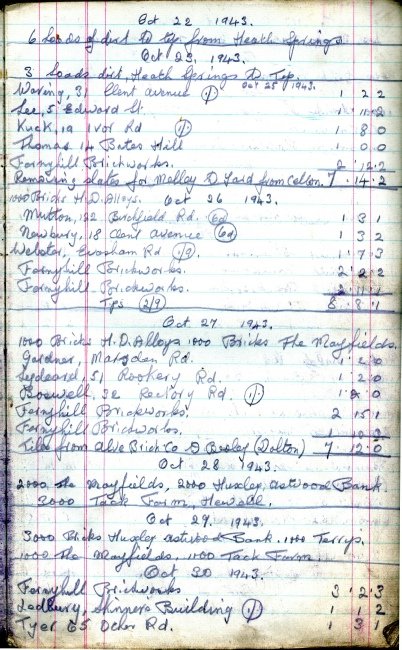 Oct 22 1943.
6 Loads of dirt to tip from Heath Springs
Oct 23. 1943.
3 Loads dirt, Heath Springs to Tip.
Oct 25 1943.
Waring, 31 Clent avenue 1/- 1 2 2
Lee, 5 Edward St. 1 11 2
Kuck, 19 Ivor Rd 1/- 1 8 0
Thomas 14 Bates Hill 1 0 0
Fernyhill Brickworks. 2 12 2
Remaining slates for Molloy & Lard from Celcon. 7 14 2
1000 Bricks H.D. Alloys. Oct 26 1943.
Mutton, 122 Birchfield Rd. 6d 1 3 1
Newbury, 18 Clent avenue 6d 1 3 2
Webster, Evesham Rd 1/9 1 7 3
Fernyhill Brickworks. 2 2 2
Fernyhill Brickworks. 2 11 1
Tps 2/9 8 8 1
Oct 27 1943.
1000 Bricks H.D. Alloys 1000 Bricks The Mayfields.
Gardner, Marsden Rd. 1 2 0
51 Rookery Rd. 1 2 0
Boswell, 32 Rectory Rd. 1/- 1 2 0
Fernyhill Brickworks. 2 15 1
Fernyhill Brickworks.
Tiles from Alve Brick Co to Besley (Dolton) 7 12 0
Oct 28 1943.
2000 The Mayfields, 2000 Huxley, astwood Bank.
3000 Tack Farm, Hewell.
Oct 29. 1943.
3000 Bricks Huxley astwood Bank. 1000 Terrys.
1000 The Mayfields. 1100 Tack Farm.
Oct 30 1943.
Fernyhill Brickworks 3 2 3
Ledbury, Skinners Building 1/- 1 1 2
Tyer 65 Other Rd. 1 3 1